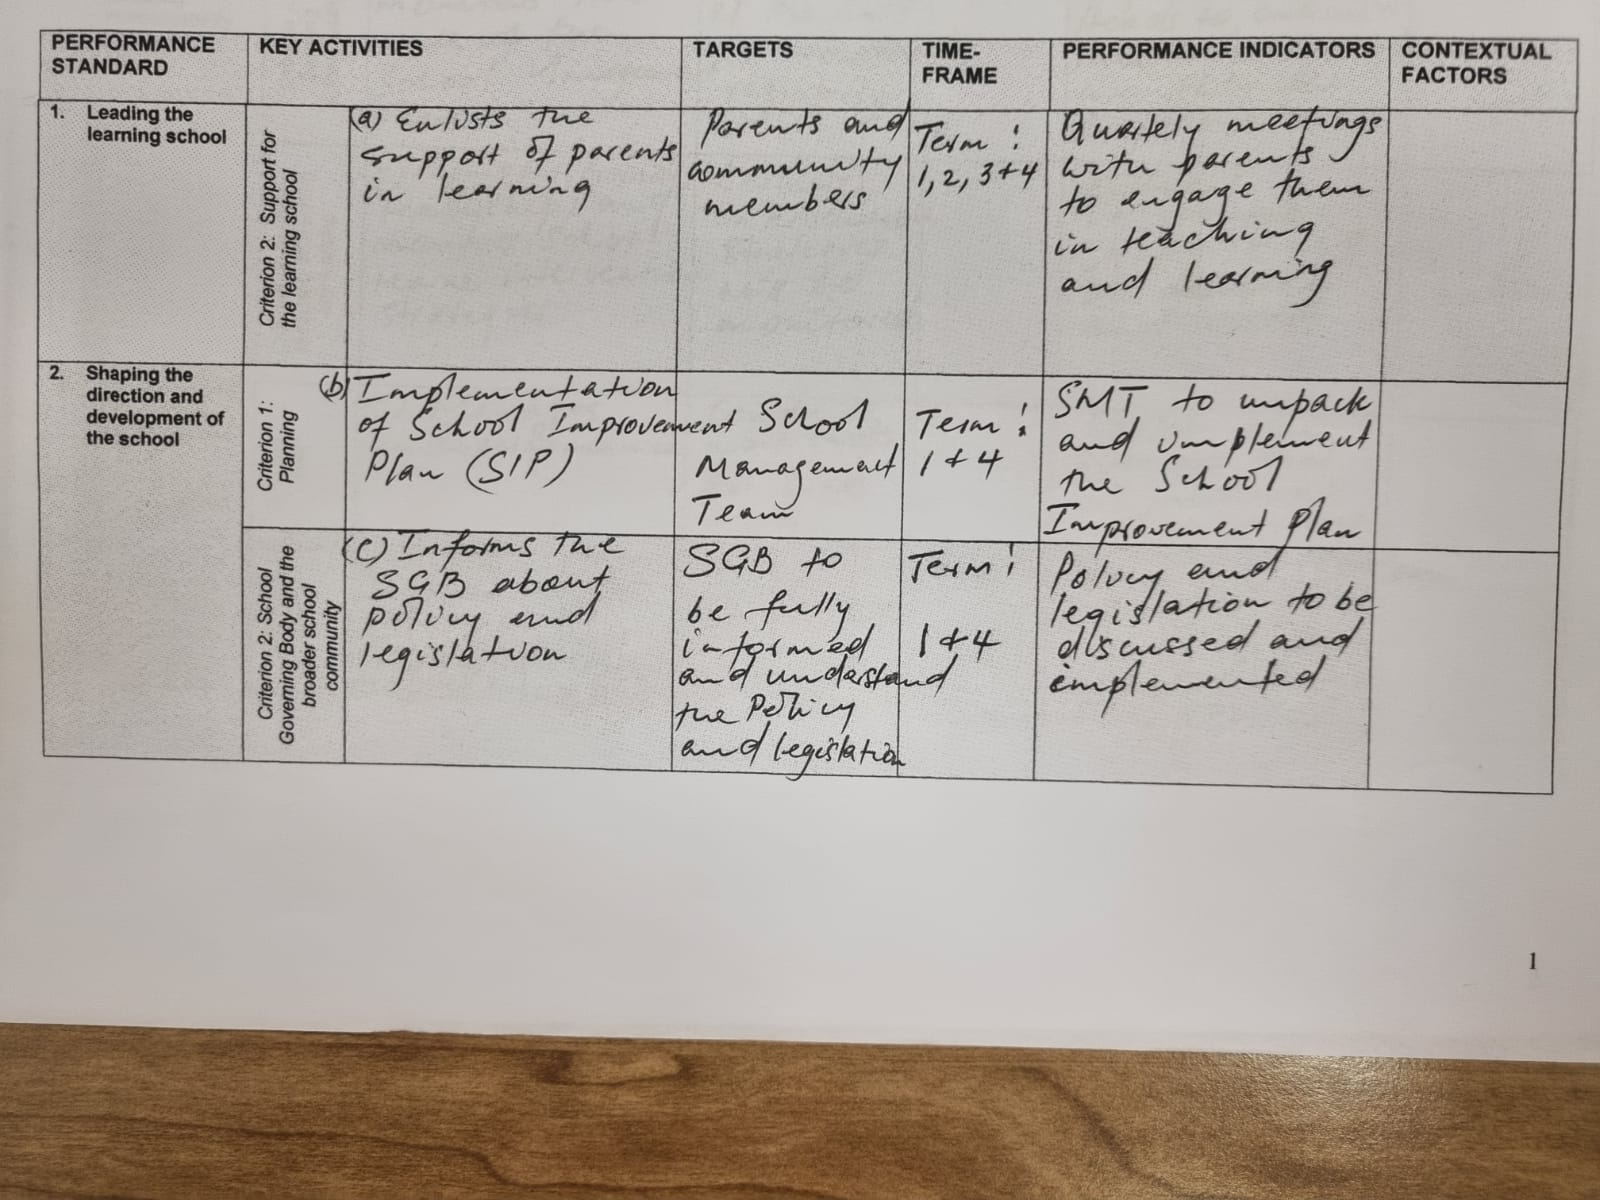 PERFORMANCE
STANDARD
KEY ACTIVITIES
TARGETS
TIME-
FRAME
PERFORMANCE INDICATORS
CONTEXTUAL
FACTORS
1. Leading the
learning school
Criterion 2: Support for
the learning school
(a) Enlists the
support of parents
in learning
Parents and
community
members
Term :
1, 2, 3+4
Quartely meetings
with parents
to engage them
in teaching
and learning
2. Shaping the
direction and
development of
the school
Criterion 1:
Planning
(b) Implementation
of School Improvement
Plan (SIP)
School
Management
Team
Term :
1 + 4
SMT to unpack
and implement
the School
Improvement Plan
Criterion 2: School
Governing Body and the
broader school
community
(c) Informs the
SGB about
policy and
legislation
SGB to
be fully
informed
and understand
the Policy
and legislation
Term :
1 + 4
Policy and
legislation to be
discussed and
implemented
1